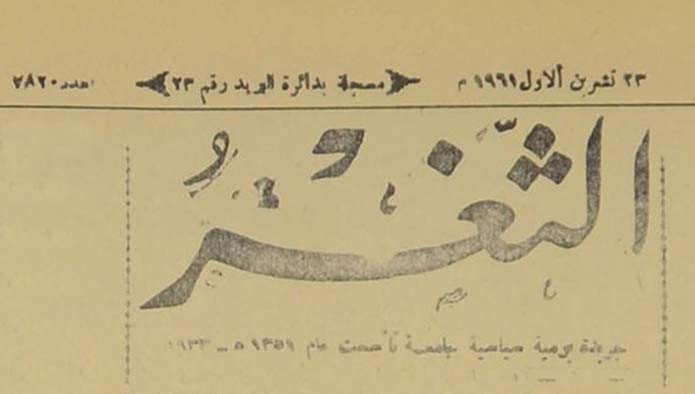 ٢٣ تشرين ألاول ١٩٦١ م مسجلة بدائرة البريد رقم ٢٣ العدد ٢٨٢٠
الثَّغْرُ
جريدة يومية سياسية جامعة تأسست عام ١٣٥١ ه ــ ١٩٣٣